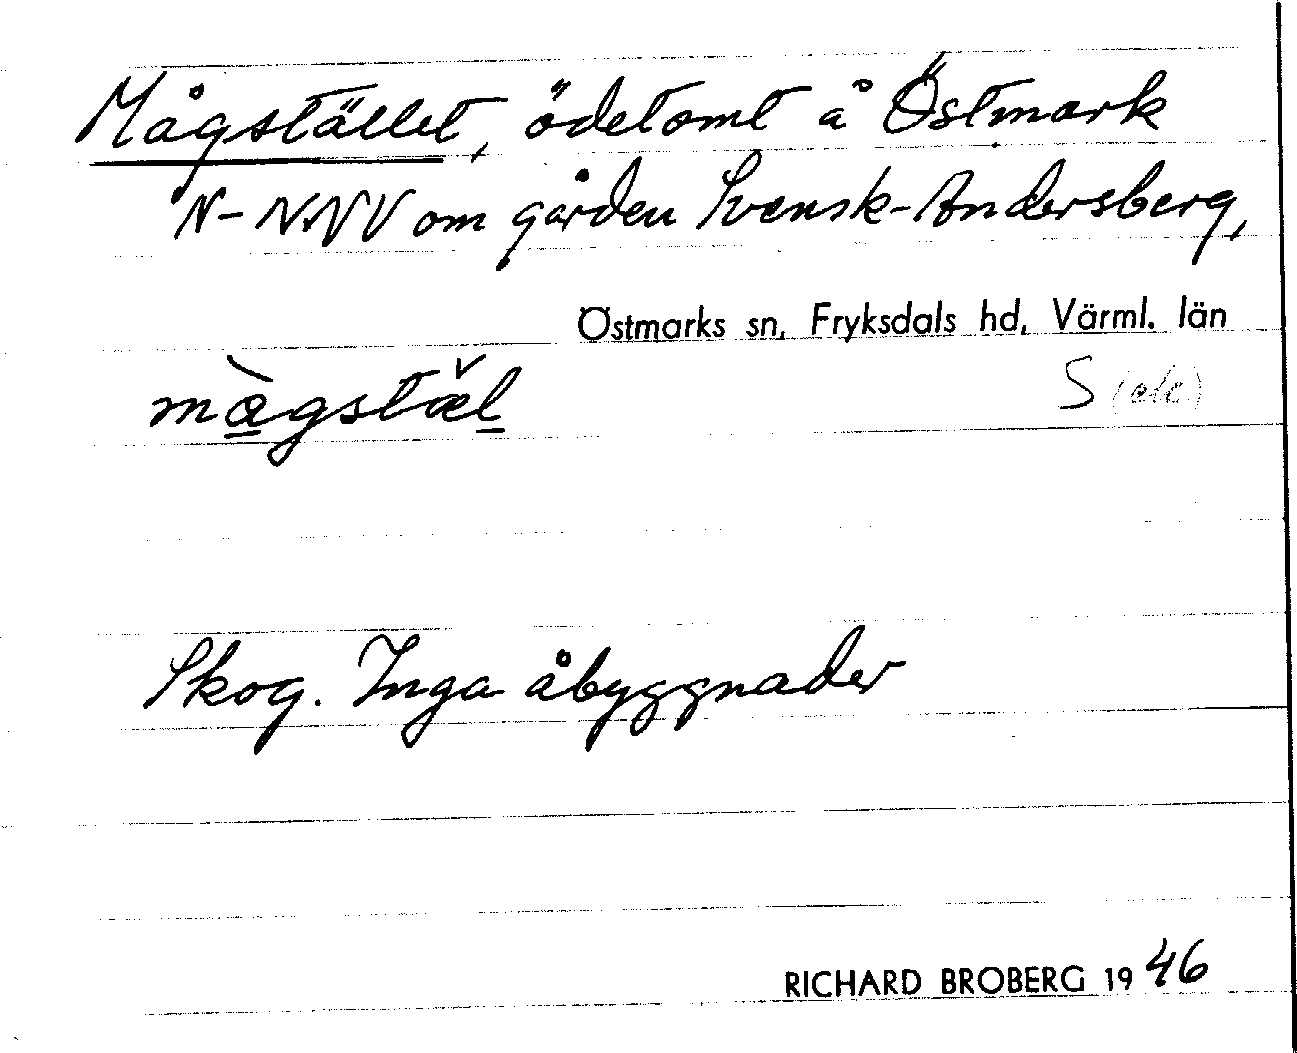 Mågstället, ödetomt å Östmark
N-NNV om gården Svensk-Andersberg,
Östmarks sn, Fryksdals hd, Värml. län
S
Skog. Inga åbyggnader
RICHARD BROBERG 1946